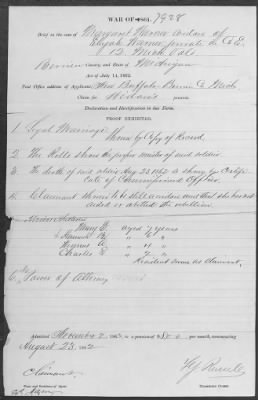 WAR OF 1861. 7928
Brief in the case of Margaret Warner widow of
Elijah Warner private Co E.
12. Mich Vols
Berrien County, and State of Michigan
Act of July 14, 1862.
Post Office address of Applicant: New Buffalo Berrien Co Mich
Claim for Widow's pension
Declaration and Certification in due Form.
PROOF EXHIBITED.
1. Legal Marriage
Shown by Copy of Record.
2. The Rolls show the proper muster of said soldier.
3. The death of said soldier Aug 23 1862 is shown by Certifi-
cate of Commissioned Officer.
4. Claimant shown to be still a widow and that she has not
aided or abetted the rebellion.
aged years
" "
" "
Charles " "
Resident same as Claimant.
6 Power of Attorney
Admitted November 2, 1863, to a pension of $8 per month, commencing
August 23, 1862
Claimant
Name and Residence of Agent.
Examining Clerk.